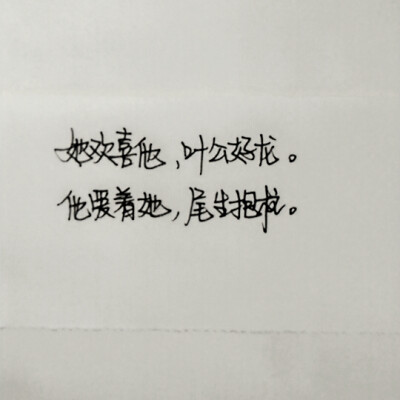 她欢喜他，叶公好龙。
他爱着她，尾生抱柱。